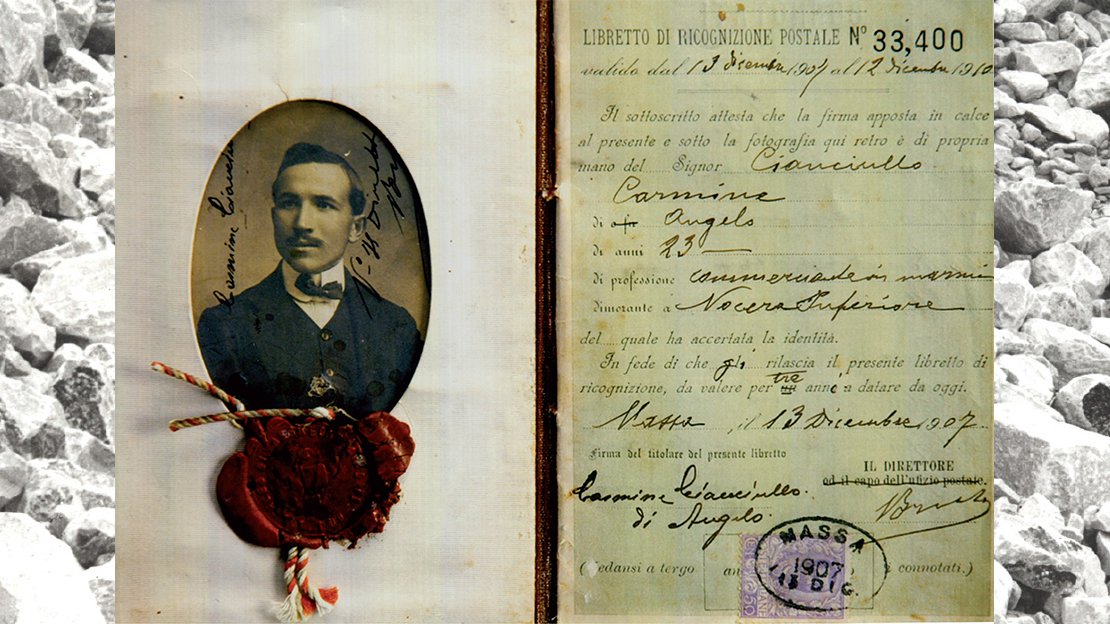 Carmine Cianciullo
Il Direttore
LIBRETTO DI RICOGNIZIONE POSTALE Nº 33,400
valido dal 13 dicembre 1907 al 12 Dicembre 1910
Il sottoscritto attesta che la firma apposta in calce
al presente e sotto la fotografia qui retro è di propria
mano del Signor Cianciullo
Carmine
di o fu Angelo
di anni 23
di professione commerciante in marmi
dimorante a Nocera Inferiore
del quale ha accertata la identità.
In fede di che gli rilascia il presente libretto di
ricognizione, da valere per un tre anne a datare da oggi.
Massa, il 13 Dicembre 1907
Firma del titolare del presente libretto
IL DIRETTORE
od il capo dell'ufizio postale.
Carmine Cianciullo
di Angelo.
MASSA
1907
13 DIC.
50
(Vedansi a tergo an connotati.)